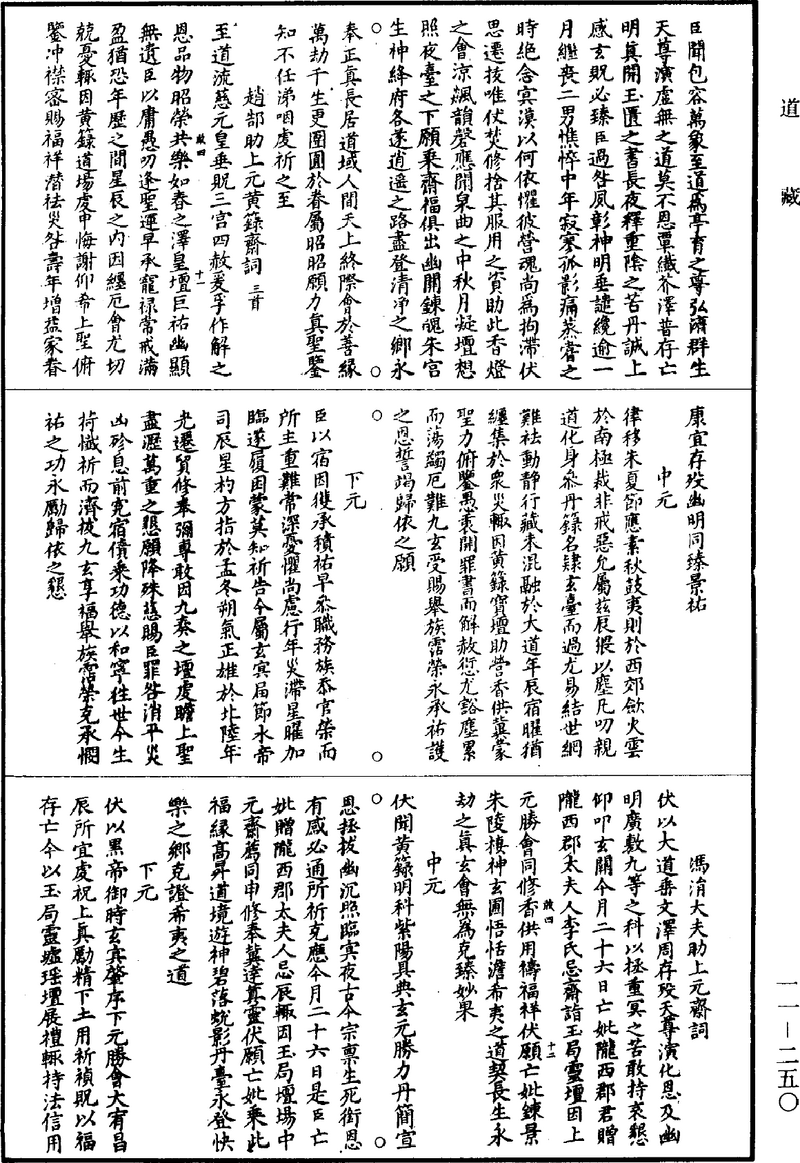 道藏
臣聞包容萬象至道為亭育之尊弘濟群生
天尊演虛無之道莫不恩覃纖芥澤普存亡
明真開玉匱之書長夜釋重陰之苦丹誠上
感玄貺必臻臣過咎夙彰神明垂譴纔逾一
月繼喪二男憔悴中年寂寥孤影痛蒸嘗之
時絕念冥漠以何依懼彼營魂尚為拘滯伏
思遷拔唯伏焚修捨其服用之資助此香燈
之會涼飆韻磬應開泉曲之中秋月凝壇想
照夜臺之下願乘齋福俱出幽關鍊魂朱宮
生神絳府各遂逍遙之路盡登清淨之鄉永
奉正真長居道域人間天上終際會於善緣
萬劫千生更團圓於眷屬昭昭願力真聖鑒
知不任涕咽虔祈之至
趙郜助上元黃籙齋詞三首
至道流慈元皇垂貺三宮四赦爰孚作解之
恩品物昭榮共樂如春之澤皇壇巨祐幽顯
無遺臣以庸愚叨逢聖運早承寵祿常戒滿
盈猶恐年歷之間星辰之內因纏厄會尤切
兢憂輒因黃籙道場虔申悔謝仰希上聖俯
鑒沖襟密賜福祥潛祛災咎壽年增益家眷
康宜存歿幽明同臻景祐
中元
律移朱夏節應素秋鼓夷則於西郊斂火雲
於南極裁非戒惡允屬茲辰很以塵凡叨親
道化身忝丹籙名隸玄臺而過尤易結世網
難祛動靜行藏未混融於大道年辰宿曜猶
纏集於眾災輒因黃籙寶壇助營香供冀蒙
聖力俯鑒愚衷開罪書而解赦愆尤豁塵累
而蕩蠲厄難九玄受賜舉族霑榮永承祐護
之恩誓竭歸依之願
下元
臣以宿因獲承積祐早忝職務族忝官榮而
所主重難常深憂懼尚慮行年災滯星曜加
臨遂履因蒙莫知祈告今屬玄冥局節水帝
司辰星杓方指於孟冬朔氣正雄於北陸年
光遷貿修奉彌專敢因九奏之壇虔瞻上聖
盡瀝萬重之懇願降殊慈賜臣罪咎消平災
凶殄息前冤宿債乘功德以和寧往世今生
持懺祈而濟拔九玄享福舉族霑榮克承憫
祐之功永勵歸依之懇
馮涓大夫助上元齋詞
伏以大道垂文澤周存歿天尊演化恩及幽
明廣敷九等之科以拯重冥之苦敢持哀懇
仰叩玄關今月二十六日亡妣隴西郡君贈
隴西郡太夫人李氏忌齋詣玉局靈壇因上
元勝會同修香供用禱福祥伏願亡妣鍊景
朱陵棲神玄圃悟恬澹希夷之道契長生永
劫之真玄會無為克臻妙果
中元
伏聞黃籙明科紫陽具典玄元勝力丹簡宣
恩拯拔幽沉照臨冥夜古今宗禀生死銜恩
有感必通所祈克應今月二十六日是臣亡
妣贈隴西郡太夫人忌辰輒因玉局壇場中
元齋薦同申修奉冀達真靈伏願亡妣乘此
福緣高昇道境遊神碧落蛻影丹臺永登快
樂之鄉克證希夷之道
下元
伏以黑帝御時玄冥肇序下元勝會大宥昌
辰所宜虔祝上真勵精下土用祈禎貺以福
存亡今以玉局靈墟瑤壇展禮輒持法信用
一一—二五〇